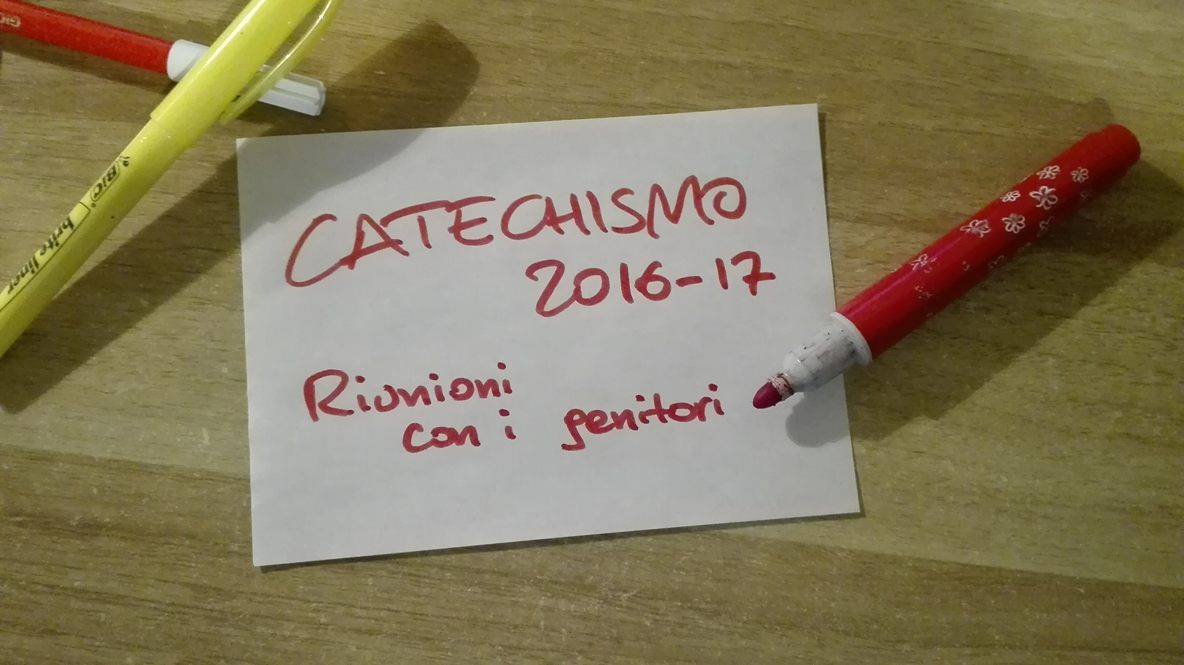 CATECHISMO
2016-17
Riunioni
con i genitori
BIC brite liner